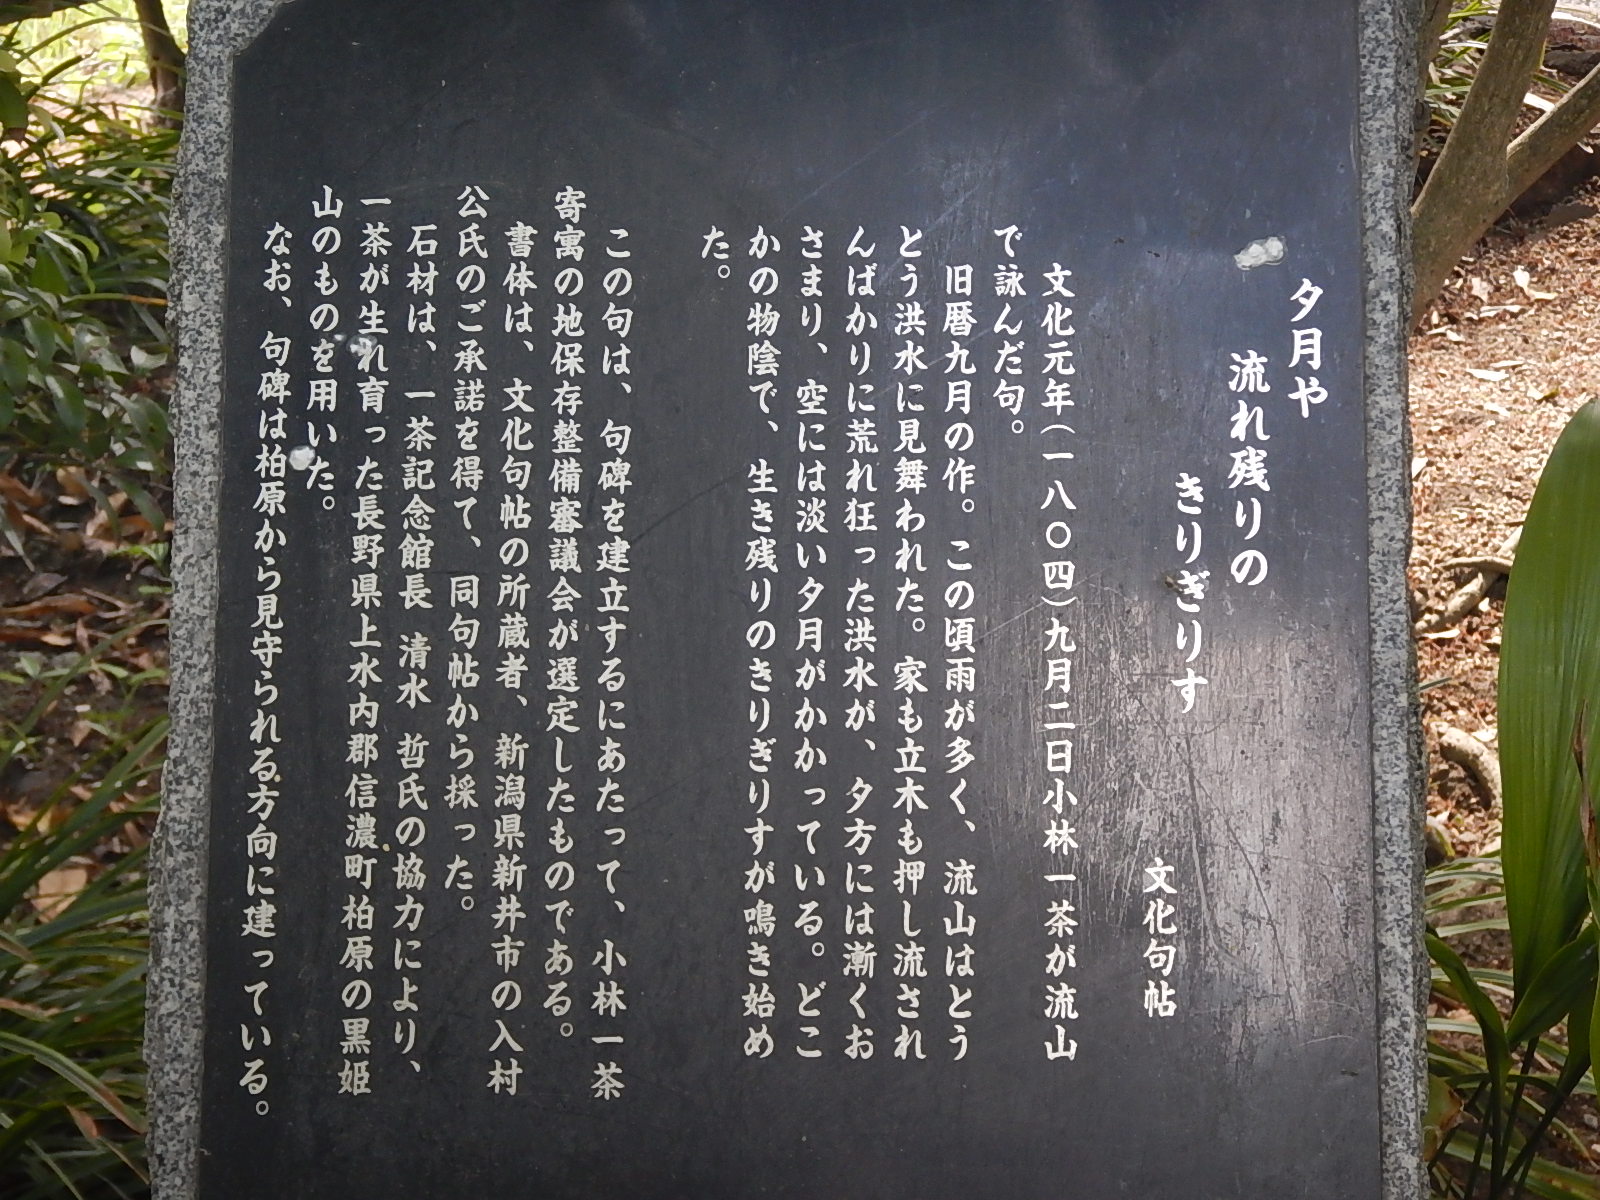 夕月や
流れ残りの
きりぎりす
文化句帖
文化元年(一八〇四)九月二日小林一茶が流山
で詠んだ句。
旧暦九月の作。この頃雨が多く、流山はとう
とう洪水に見舞われた。家も立木も押し流され
んばかりに荒れ狂った洪水が、夕方には漸くお
さまり、空には淡い夕月がかかっている。どこ
かの物陰で、生き残りのきりぎりすが鳴き始め
た。
この句は、句碑を建立するにあたって、小林一茶
寄寓の地保存整備審議会が選定したものである。
書体は、文化句帖の所蔵者、新潟県新井市の入村
公氏のご承諾を得て、同句帖から採った。
石材は、一茶記念館長 清水 哲氏の協力により、
一茶が生れ育った長野県上水内郡信濃町柏原の黒姫
山のものを用いた。
なお、句碑は柏原から見守られる方向に建っている。